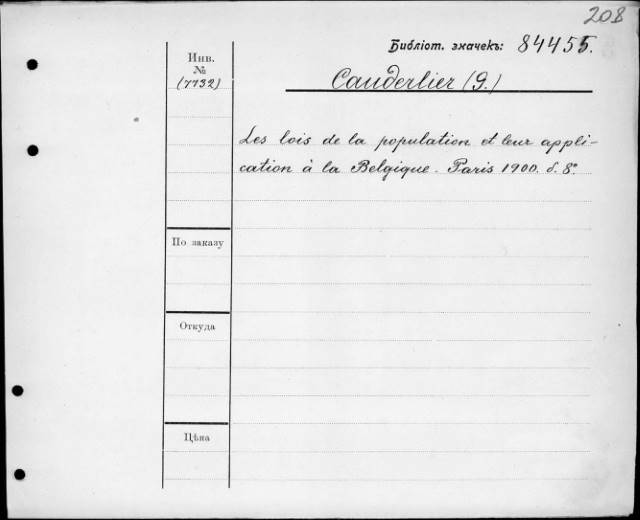 208
Библіот. значекъ: 84455.
Инв.
№
(7732)
Cauderlier (G.)
Les lois de la population et leur appli-
cation à la Belgique. Paris 1900. d. 8°
По заказу
Откуда
Цѣна